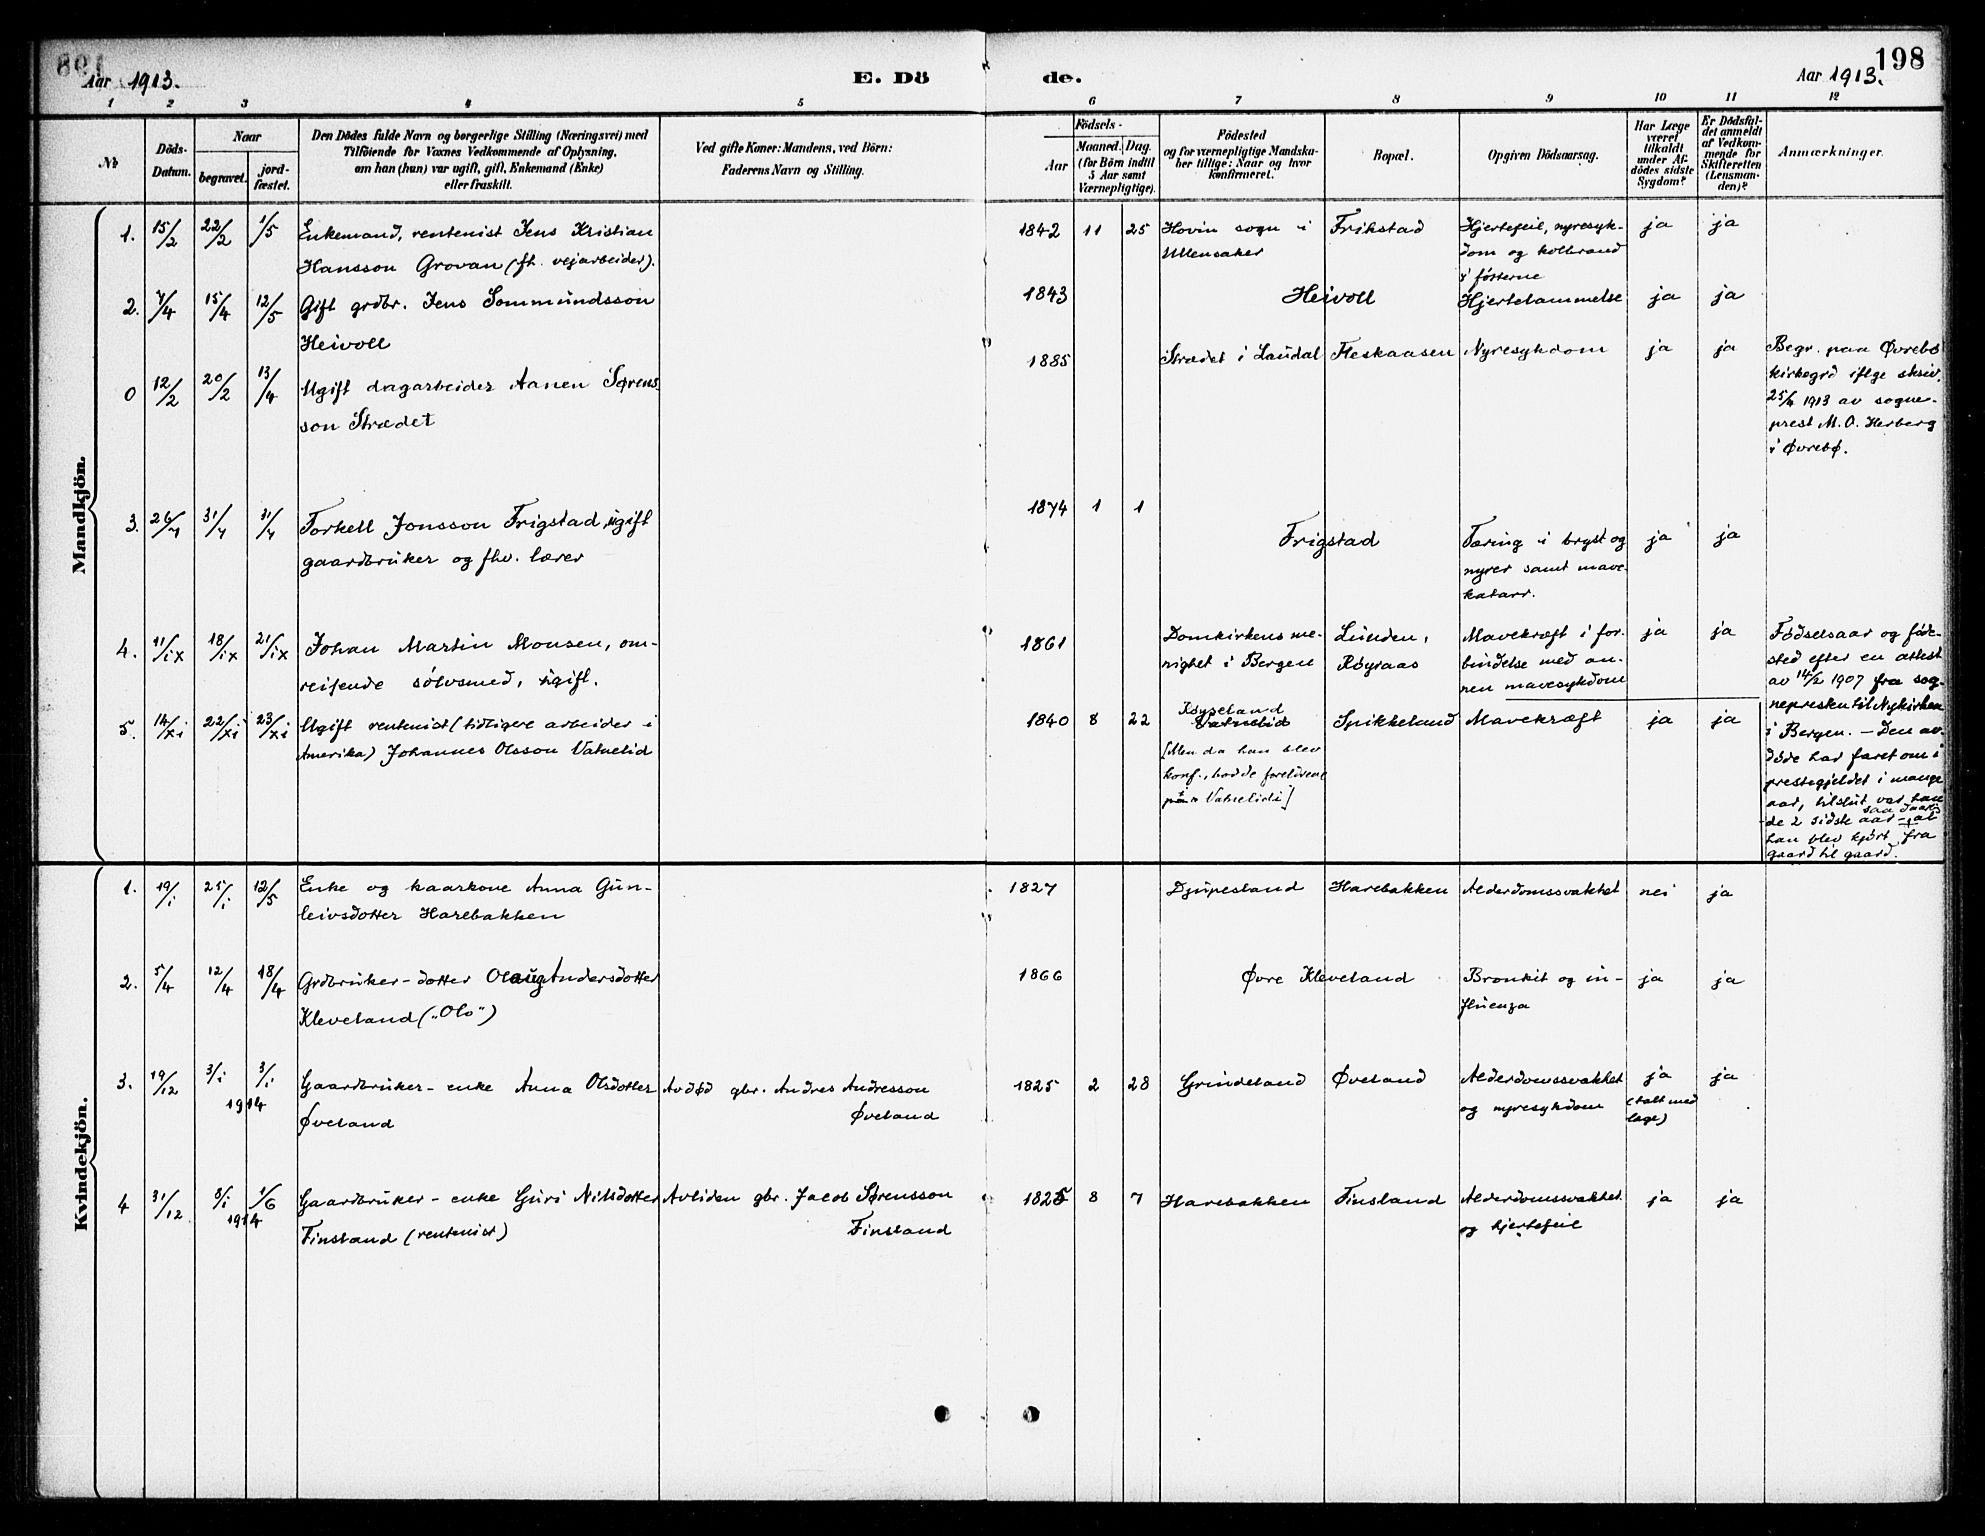 198
Aar 1913.
E. Dö de.
Aar 1913.
1 2 3 4 5 6 7 8 9 10 11 12
№
Döds-
Datum.
Naar
begravet.
jord-
fæstet.
Den Dödes fulde Navn og borgerlige Stilling (Næringsvei) med
Tilföiende for Voxnes Vedkommende af Oplysning,
om han (hun) var ugift, gift, Enkemand (Enke)
eller fraskilt.
Ved gifte Koner: Mandens, ved Börn:
Faderens Navn og Stilling.
Födsels-
Aar
Maaned. Dag.
(for Börn indtil
5 Aar samt
Værnepligtige).
Födested
og for værnepligtige Mandska-
ber tillige: Naar og hvor
konfirmeret.
Bopæl.
Opgiven Dödsaarsag.
Har Læge
været
tilkaldt
under Af-
dödes sidste
Sygdom?
Er Dödsfal-
det anmeldt
af Vedkom-
mende for
Skifteretten
(Lensman-
den)?
Anmærkninger.
Mandkjön.
1. 15/2 22/2 1/5 Enkemand, rentenist Jens Kristian
Hansson Grovan (fh. vejarbeider).
1842 11 25 Hovin sogn i
Ullensaker
Frikstad
Hjertefeil, nyresyk-
dom og kolbrand
i føtterne
ja ja
2. 7/4 15/4 12/5 Gift grdbr. Jens Sommundsson
Heivoll
1843 Heivoll Hjertelammelse ja ja
0 12/2 20/2 13/4 Ugift dagarbeider Aanen Sørens
son Strædet
1885 Strædet i Laudal Fleskaasen Nyresykdom ja ja
Begr. paa Øvrebø
kirkegrd iflge skriv.
25/4 1913 av sogne-
prest M. O. Herberg
i Øvrebø.
3. 26/4 31/4 31/4 Torkell Jonsson Frigstad, ugift
gaardbruker og fhv. lærer
1874 1 1 Frigstad
Tæring i bryst og
nyrer samt mave-
katarr.
ja ja
4. 11/ix 18/ix 21/ix Johan Martin Monsen, om-
reisende sølvsmed, ugift.
1861 Domkirkens me-
nighet i Bergen
Lunden,
Røyraas
Mavekræft i for-
bindelse med an-
nen mavesykdom
ja ja
Fødselsaar og føde-
sted efter en attest
av 14/2 1907 fra sog-
nepresten til Nykirken
i Bergen. – Den av-
døde har faret om i
prestegjeldet i mange
aar, tilslut var han
de 2 sidste aar saa daarl. at
han blev kjørt fra
gaard til gaard.
5. 14/xi 22/xi 23/xi Ugift rentenist (tidligere arbeider i
Amerika) Johannes Olsson Vatnelid
1840 8 22 Røyseland
Vatnelid
[Men da han blev
konf., bodde foreldrene
paa Vatnelidi]
Spikkeland Mavekræft ja ja
Kvindekjön.
1. 19/i 25/i 12/5 Enke og kaarkone Anna Gun-
leivsdotter Harebakken
1827 Djupesland Harebakken Alderdomssvakhet nei ja
2. 5/4 12/4 18/4 Grdbruker-dotter Olaug Andersdotter
Kleveland („Olo")
1866 Øvre Kleveland Bronkit og in-
fluenza
ja ja
3. 19/12 3/i 3/i
1914
Gaardbruker-enke Anna Olsdotter
Øveland
Avdød gbr. Andres Andresson
Øveland
1825 2 28 Grindeland Øveland Alderdomssvakhet
og nyresykdom
ja
(talt med
læge)
ja
4 31/12 8/i 1/6
1914
Gaardbruker-enke Guri Nilsdotter
Finsland (rentenist)
Avliden gbr. Jacob Sørensson
Finsland
1825 8 7 Harebakken Finsland Alderdomssvakhet
og hjertefeil
ja ja